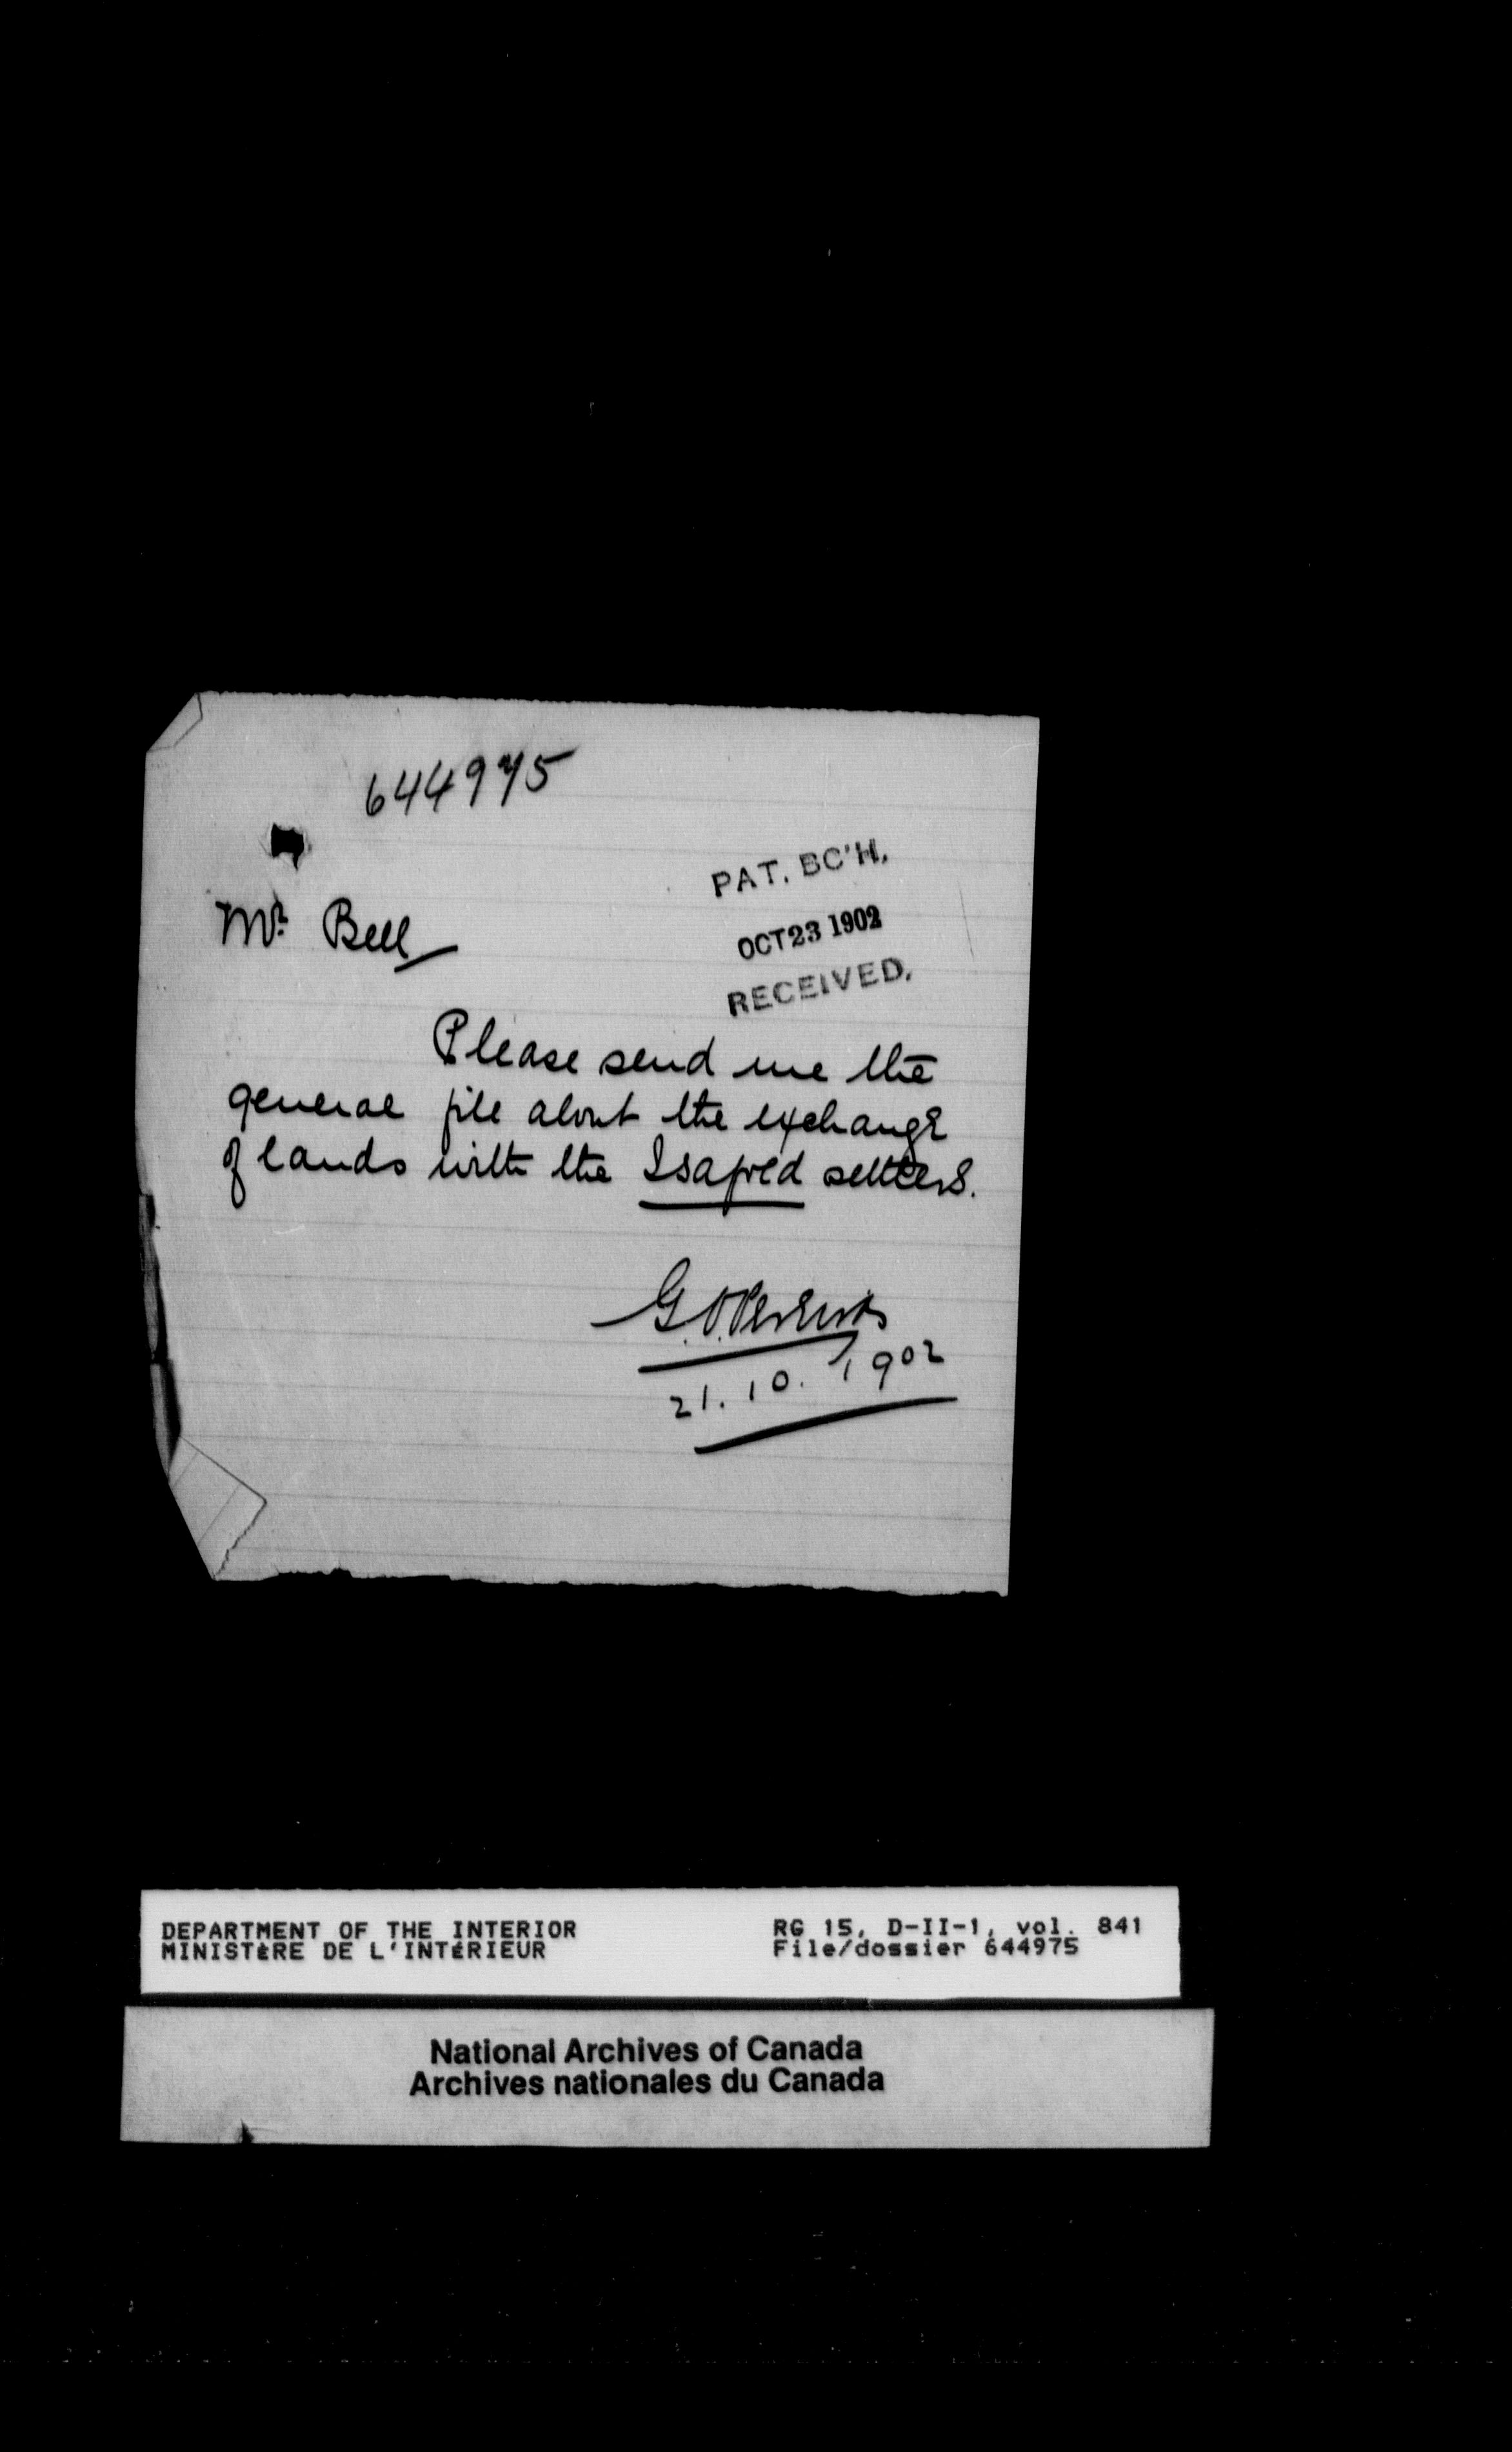 644975
PAT. BC'H.
OCT 23 1902
RECEIVED.
Mr. Bell
Please send me the
general file about the exchange
of lands with the settlers.
21.10.1902
DEPARTMENT OF THE INTERIOR
MINISTÈRE DE L'INTÉRIEUR
RG 15, D-II-1, vol. 841
File/dossier 644975
National Archives of Canada
Archives nationales du Canada